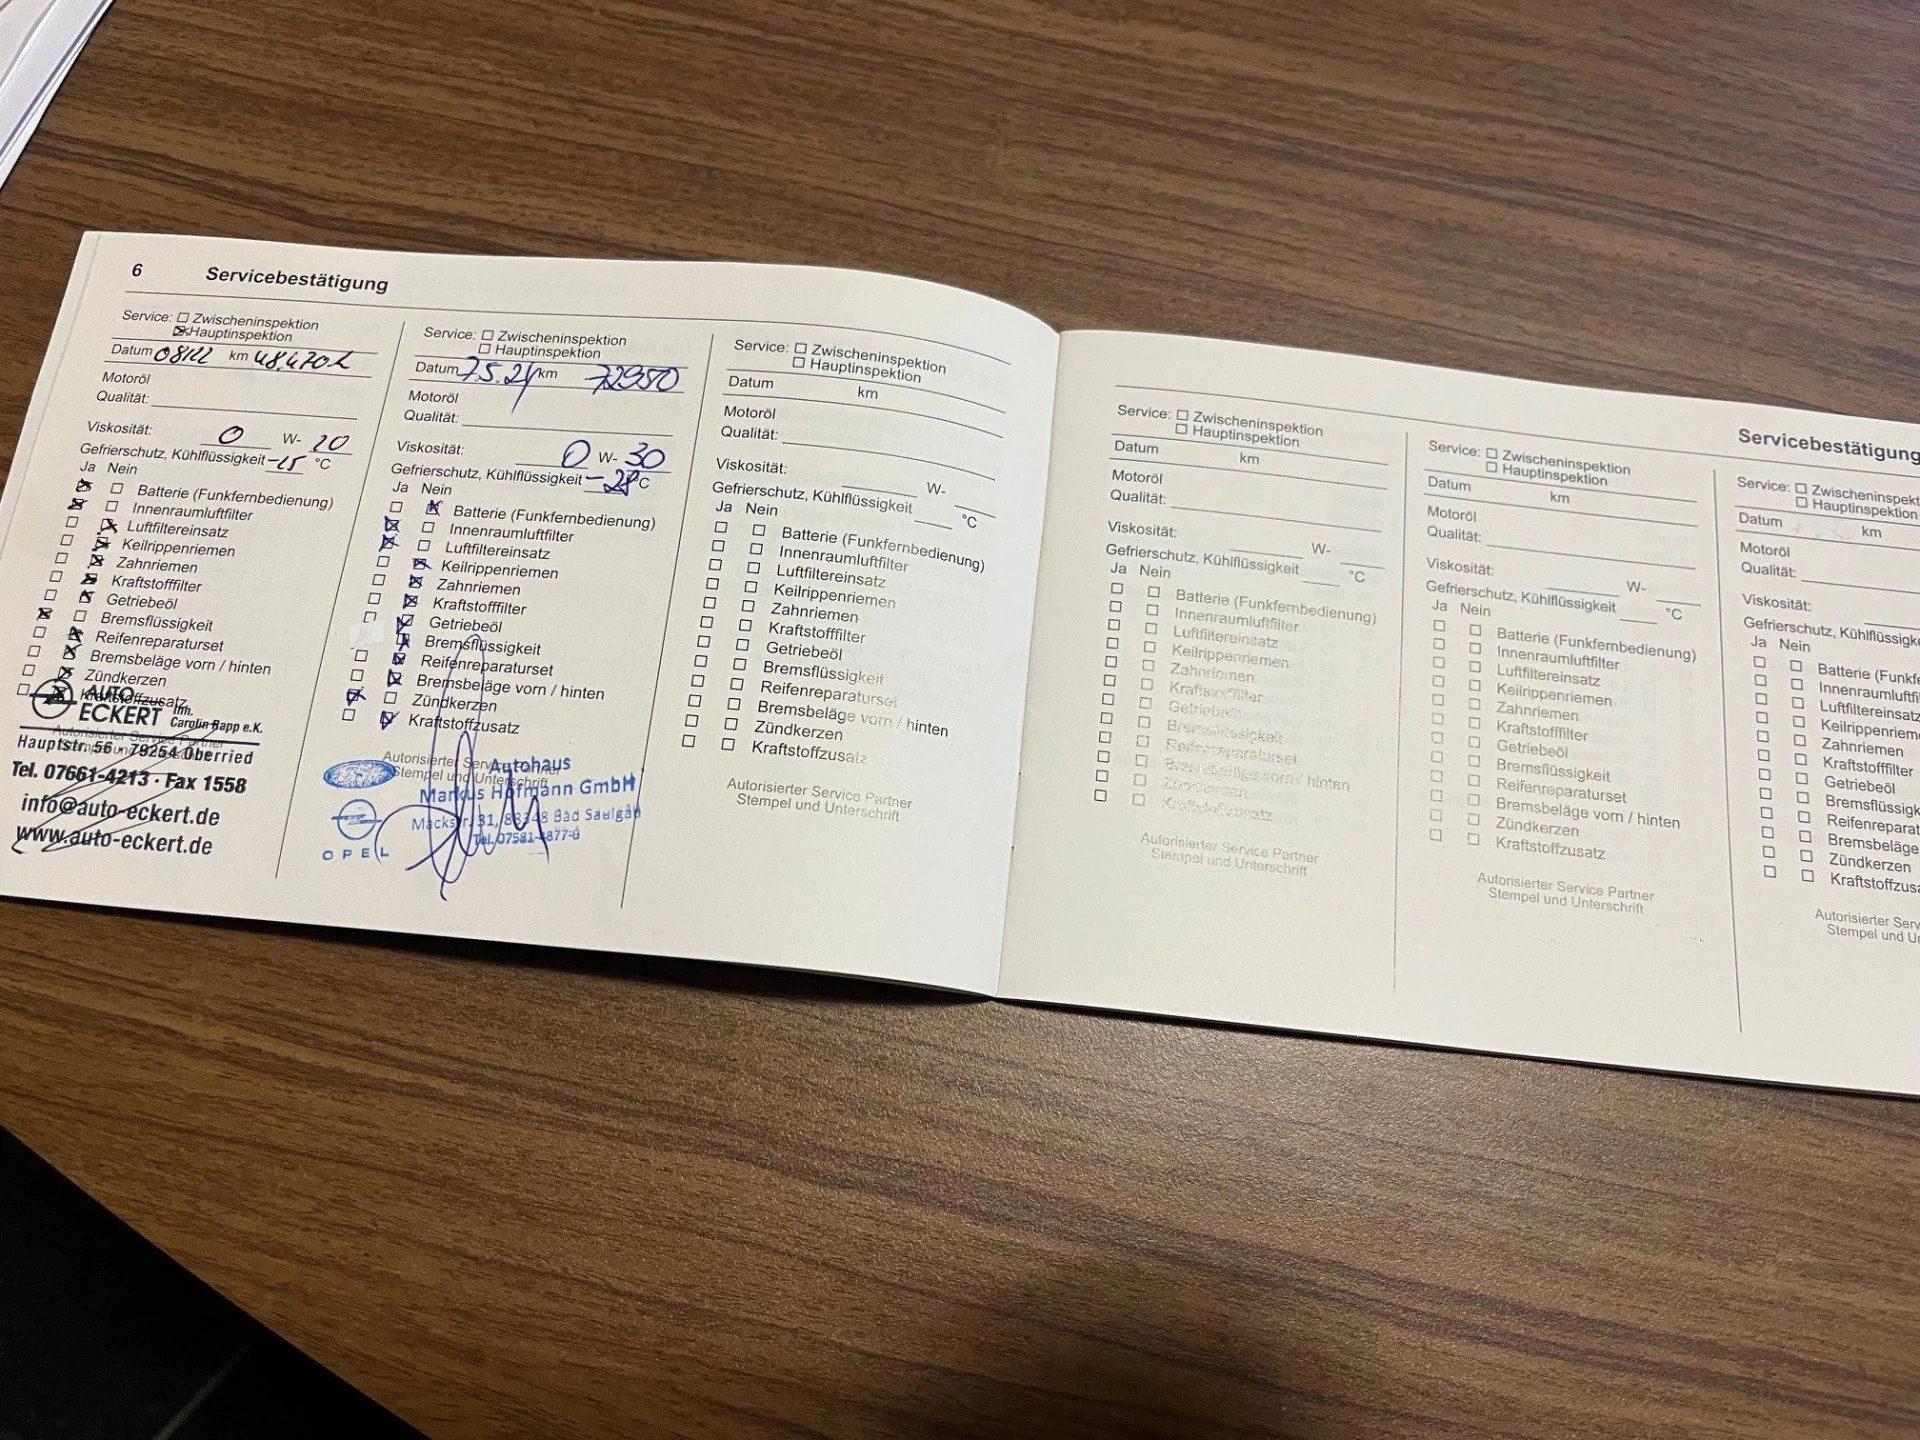 6 Servicebestätigung
Service: ☐ Zwischeninspektion
☒ Hauptinspektion
Datum 08/22 km 48.470
Motoröl
Qualität:
Viskosität: 0 W- 20
Gefrierschutz, Kühlflüssigkeit -25 °C
Ja Nein
☒ ☐ Batterie (Funkfernbedienung)
☒ ☐ Innenraumluftfilter
☐ ☒ Luftfiltereinsatz
☐ ☒ Keilrippenriemen
☐ ☒ Zahnriemen
☐ ☒ Kraftstofffilter
☐ ☒ Getriebeöl
☒ ☐ Bremsflüssigkeit
☐ ☒ Reifenreparaturset
☐ ☒ Bremsbeläge vorn / hinten
☐ ☒ Zündkerzen
☐ ☒ Kraftstoffzusatz
Autorisierter Service Partner
AUTO
ECKERT Inh.
Carolin Rapp e.K.
Hauptstr. 56 · 79254 Oberried
Tel. 07661-4213 · Fax 1558
info@auto-eckert.de
www.auto-eckert.de
Service: ☐ Zwischeninspektion
☐ Hauptinspektion
Datum 7.5.24 km 72950
Motoröl
Qualität:
Viskosität: 0 W- 30
Gefrierschutz, Kühlflüssigkeit -28 °C
Ja Nein
☐ ☒ Batterie (Funkfernbedienung)
☒ ☐ Innenraumluftfilter
☒ ☐ Luftfiltereinsatz
☐ ☒ Keilrippenriemen
☐ ☒ Zahnriemen
☐ ☒ Kraftstofffilter
☐ ☒ Getriebeöl
☒ Bremsflüssigkeit
☐ ☒ Reifenreparaturset
☐ ☒ Bremsbeläge vorn / hinten
☒ ☐ Zündkerzen
☐ ☒ Kraftstoffzusatz
Autorisierter Service Partner
Stempel und Unterschrift
Autohaus
Markus Hofmann GmbH
Mackstr. 31, 88348 Bad Saulgau
Tel. 07581-4877-0
OPEL
Service: ☐ Zwischeninspektion
☐ Hauptinspektion
Datum km
Motoröl
Qualität:
Viskosität: W-
Gefrierschutz, Kühlflüssigkeit °C
Ja Nein
☐ ☐ Batterie (Funkfernbedienung)
☐ ☐ Innenraumluftfilter
☐ ☐ Luftfiltereinsatz
☐ ☐ Keilrippenriemen
☐ ☐ Zahnriemen
☐ ☐ Kraftstofffilter
☐ ☐ Getriebeöl
☐ ☐ Bremsflüssigkeit
☐ ☐ Reifenreparaturset
☐ ☐ Bremsbeläge vorn / hinten
☐ ☐ Zündkerzen
☐ ☐ Kraftstoffzusatz
Autorisierter Service Partner
Stempel und Unterschrift
Servicebestätigung
Service: ☐ Zwischeninspektion
☐ Hauptinspektion
Datum km
Motoröl
Qualität:
Viskosität: W-
Gefrierschutz, Kühlflüssigkeit °C
Ja Nein
☐ ☐ Batterie (Funkfernbedienung)
☐ ☐ Innenraumluftfilter
☐ ☐ Luftfiltereinsatz
☐ ☐ Keilrippenriemen
☐ ☐ Zahnriemen
☐ ☐ Kraftstofffilter
☐ ☐ Getriebeöl
☐ ☐ Bremsflüssigkeit
☐ ☐ Reifenreparaturset
☐ ☐ Bremsbeläge vorn / hinten
☐ ☐ Zündkerzen
☐ ☐ Kraftstoffzusatz
Autorisierter Service Partner
Stempel und Unterschrift
Service: ☐ Zwischeninspektion
☐ Hauptinspektion
Datum km
Motoröl
Qualität:
Viskosität: W-
Gefrierschutz, Kühlflüssigkeit °C
Ja Nein
☐ ☐ Batterie (Funkfernbedienung)
☐ ☐ Innenraumluftfilter
☐ ☐ Luftfiltereinsatz
☐ ☐ Keilrippenriemen
☐ ☐ Zahnriemen
☐ ☐ Kraftstofffilter
☐ ☐ Getriebeöl
☐ ☐ Bremsflüssigkeit
☐ ☐ Reifenreparaturset
☐ ☐ Bremsbeläge vorn / hinten
☐ ☐ Zündkerzen
☐ ☐ Kraftstoffzusatz
Autorisierter Service Partner
Stempel und Unterschrift
Service: ☐ Zwischeninspekt
☐ Hauptinspektion
Datum km
Motoröl
Qualität:
Viskosität:
Gefrierschutz, Kühlflüssigke
Ja Nein
☐ ☐ Batterie (Funkfe
☐ ☐ Innenraumluftfi
☐ ☐ Luftfiltereinsatz
☐ ☐ Keilrippenrieme
☐ ☐ Zahnriemen
☐ ☐ Kraftstofffilter
☐ ☐ Getriebeöl
☐ ☐ Bremsflüssigk
☐ ☐ Reifenreparat
☐ ☐ Bremsbeläge
☐ ☐ Zündkerzen
☐ ☐ Kraftstoffzusa
Autorisierter Serv
Stempel und U